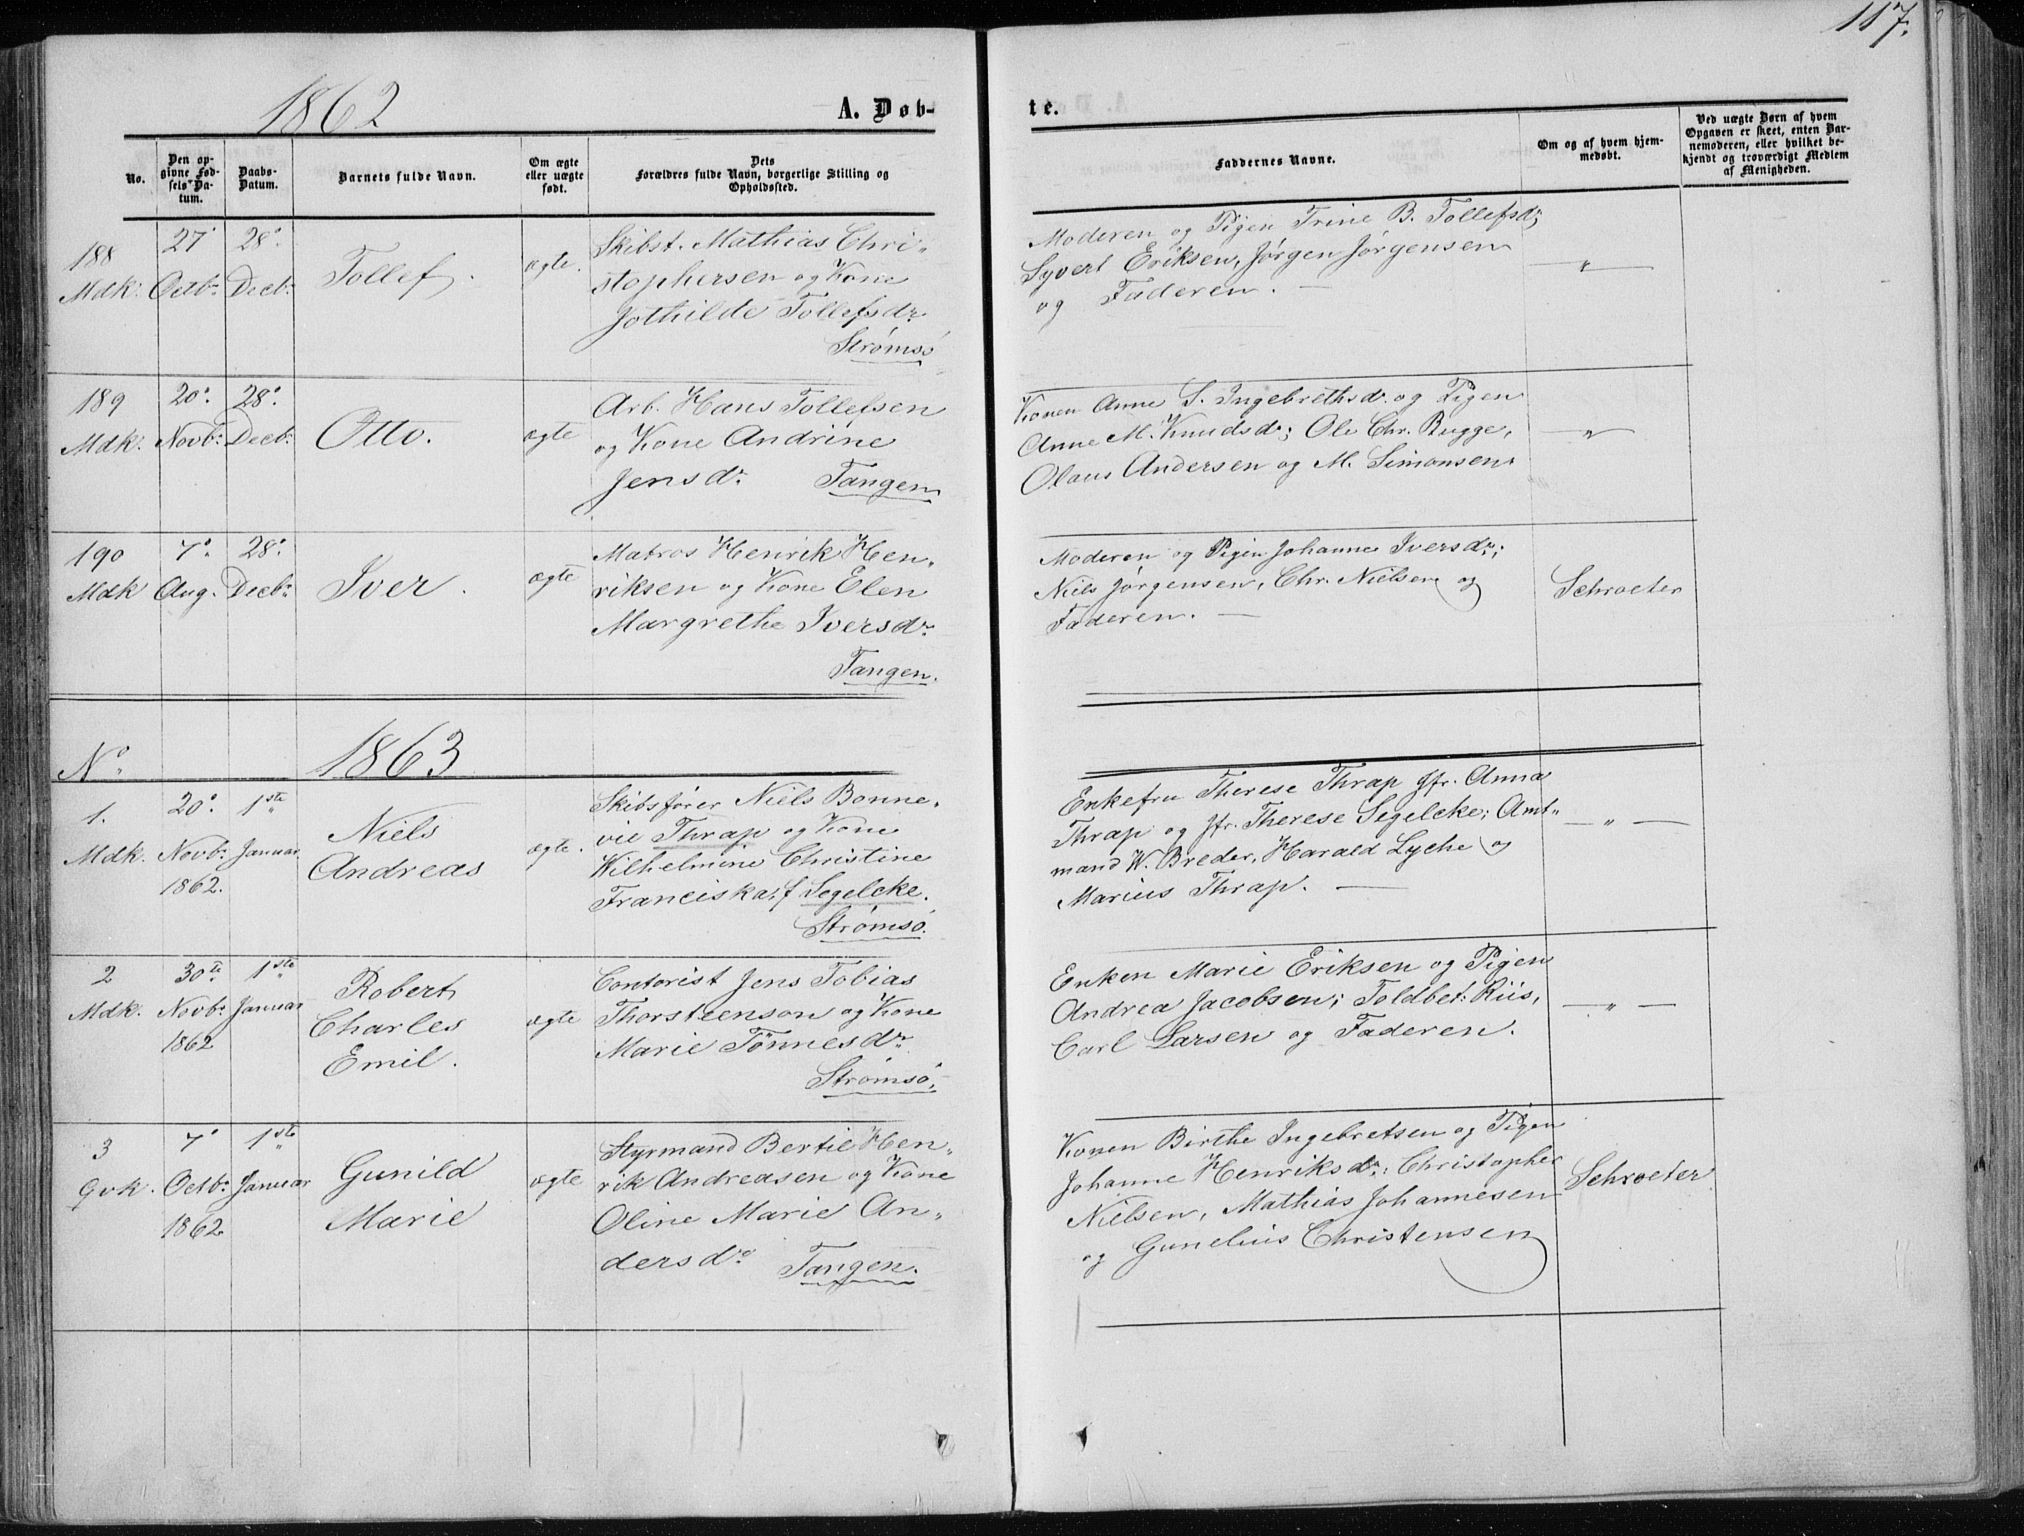 117.
1862
A. Døb-
te.
No.
Den op-
givne Fød-
sels-Da-
tum.
Daabs-
Datum.
Barnets fulde Navn.
Om ægte
eller uægte
født.
Dets
Forældres fulde Navn, borgerlige Stilling og
Opholdssted.
Faddernes Navne.
Om og af hvem hjem-
medøbt.
Ved uægte Børn af hvem
Opgaven er skeet, enten Bar-
nemoderen, eller hvilket be-
kjendt og troværdigt Medlem
af Menigheden.
188
Mdk.
27
Octbr
28
Decbr
Tollef.
ægte.
Skibst. Mathias Chri-
stophersen og Kone
Jothilde Tollefsdr
Strømsø
Moderen og Pigen Trine B. Tollefsdr;
Syvert Eriksen, Jørgen Jørgensen
og Faderen. —
— " —
189
Mdk.
20.
Novbr
28.
Decbr
Otto.
ægte
Arb. Hans Tollefsen
og Kone Andrine
Jensdr. Tangen
Konen Anne S. Ingebrethsdr. og Pigen
Anne M. Knudsdr; Ole Chr. Bugge,
Olaus Andersen og M. Simonsen.
— " —
190
Mdk
7.
Aug.
28.
Decbr
Iver.
ægte
Matros Henrik Hen-
riksen og Kone Elen
Margrethe Iversdr.
Tangen.
Moderen og Pigen Johanne Iversdr.;
Niels Jørgensen, Chr. Nielsen og
Faderen. —
Schroeter
No.
1863
1.
Mdk.
20.
Novbr
1862.
1ste
Januar
Niels
Andreas
ægte.
Skibsfører Niels Bonne-
vie Thrap og Kone
Wilhelmine Christine
Franciska, f. Segelcke.
Strømsø.
Enkefru Therese Thrap Jfr. Anna
Thrap og Jfr. Therese Segelcke; Amt-
mand W. Breder, Harald Lyche og
Marius Thrap. —
— " —
2
Mdk.
30te
Novbr
1862
1ste
Januar
Robert
Charles
Emil.
ægte
Contorist Jens Tobias
Thorsteenson og Kone
Marie Tönnesdr.
Strømsø.
Enken Marie Eriksen og Pigen
Andrea Jacobsen; Toldbet: Riis,
Carl Larsen og Faderen.
— " —
3
Qvk.
7
Octbr
1862
1ste
Januar
Gunild
Marie
ægte
Styrmand Bertil Hen-
rik Andreasen og Kone
Oline Marie An-
dersdr. Tangen.
Konen Birthe Ingebretsen og Pigen
Johanne Henriksdr.; Christopher
Nielsen, Mathias Johannesen
og Gunelius Christensen
Schroeter